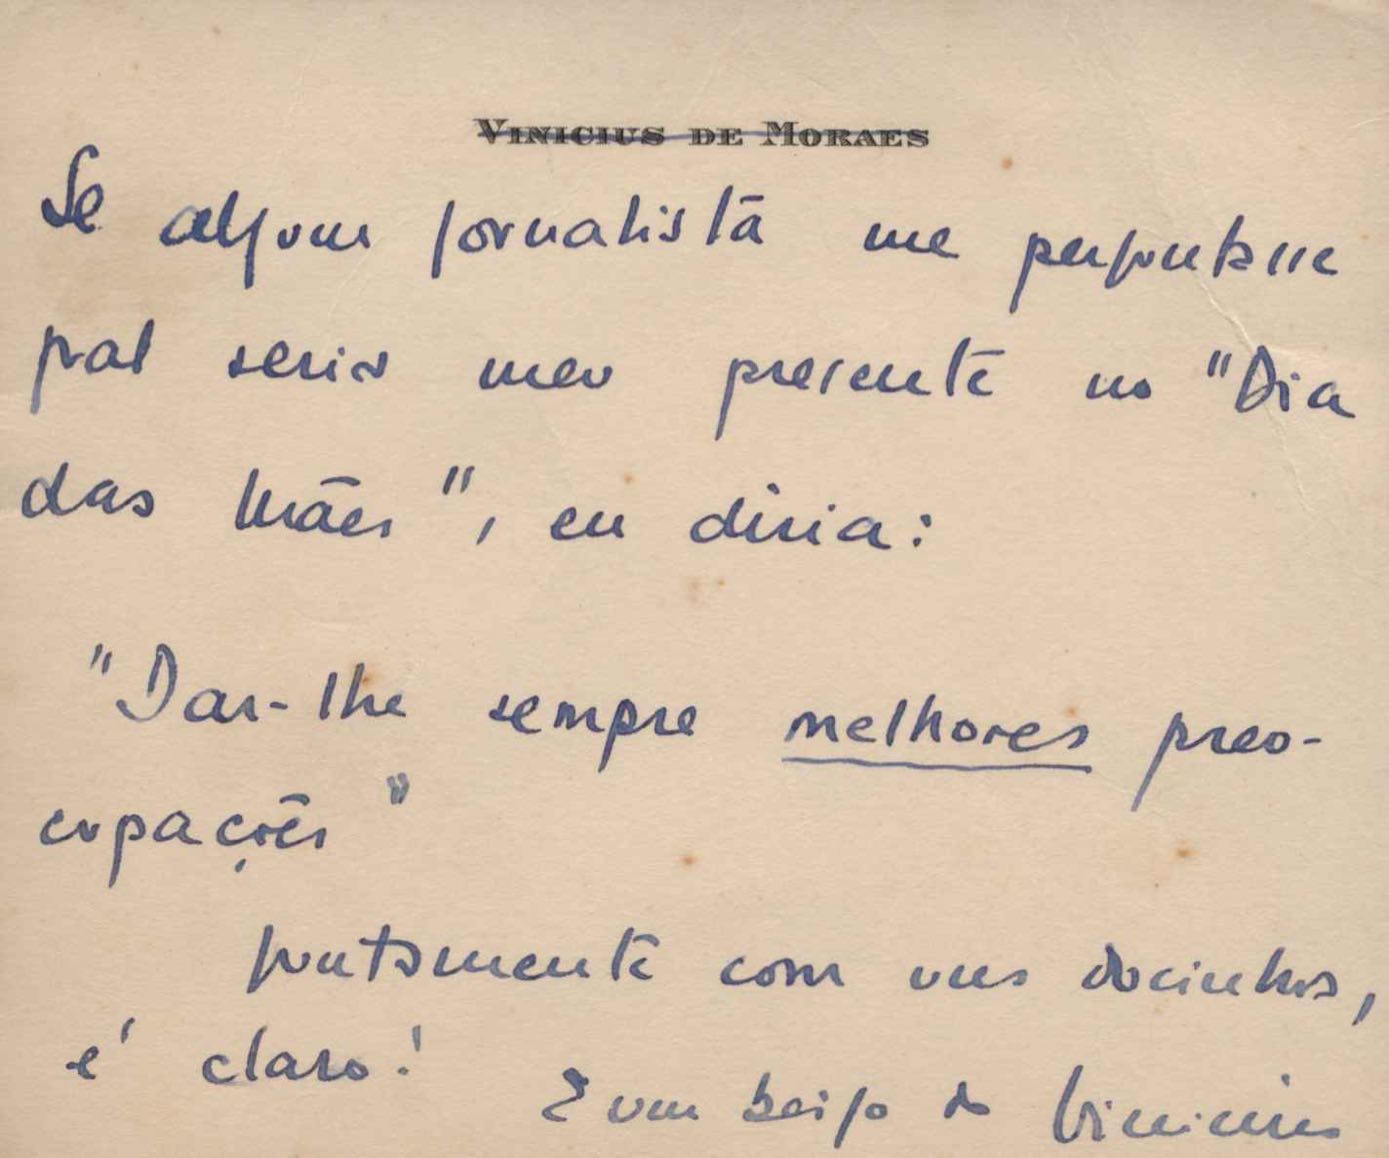 VINICIUS DE MORAES
Se algum jornalista me perguntasse
qual seria meu presente no "Dia
das Mães", eu diria:
"Dar-lhe sempre melhores preo-
cupações"
juntamente com uns docinhos,
é claro!
E um beijo do Vinicius